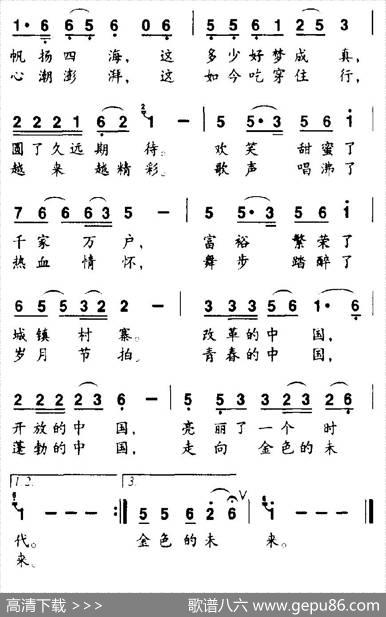 1· 6 6 5 6 0 6 | 5 5 6 1 2 1 2 5 3 |
帆扬四海,这 多少好梦成真,
心潮澎湃,这 如今吃穿住行,
2 2 2 1 6 2 1 — | 5 5· 3 5 6 1 |
圆了久远期待。 欢笑甜蜜了
越来越精彩。 歌声唱沸了
7 6 6 6 3 5 — | 5 5· 3 5 6 1 |
千家万户, 富裕繁荣了
热血情怀, 舞步踏醉了
6 5 5 3 2 2 — | 5 5 3 5 6 1· 6 |
城镇村寨。 改革的中国,
岁月节拍。 青春的中国,
2 2 2 2 3 6 — | 5 5 3 3 2 3 2 6 |
开放的中国, 亮丽了一个时
蓬勃的中国, 走向金色的未
1.2. 3.
1 — — — :‖ 5 5 6 2 6 V 1 — — — ‖
代。 金色的未来。
来。
高清下载 >>> 歌谱八六 www.gepu86.com